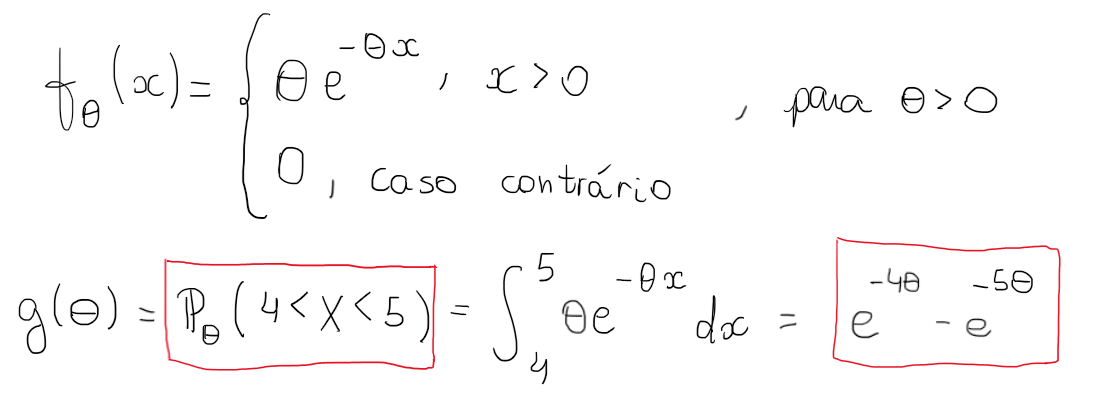 f_θ(x) = { θe^{-θx}, x > 0
0, caso contrário , para θ > 0
g(θ) = ℙ_θ(4 < X < 5) = ∫_4^5 θe^{-θx} dx = e^{-4θ} - e^{-5θ}